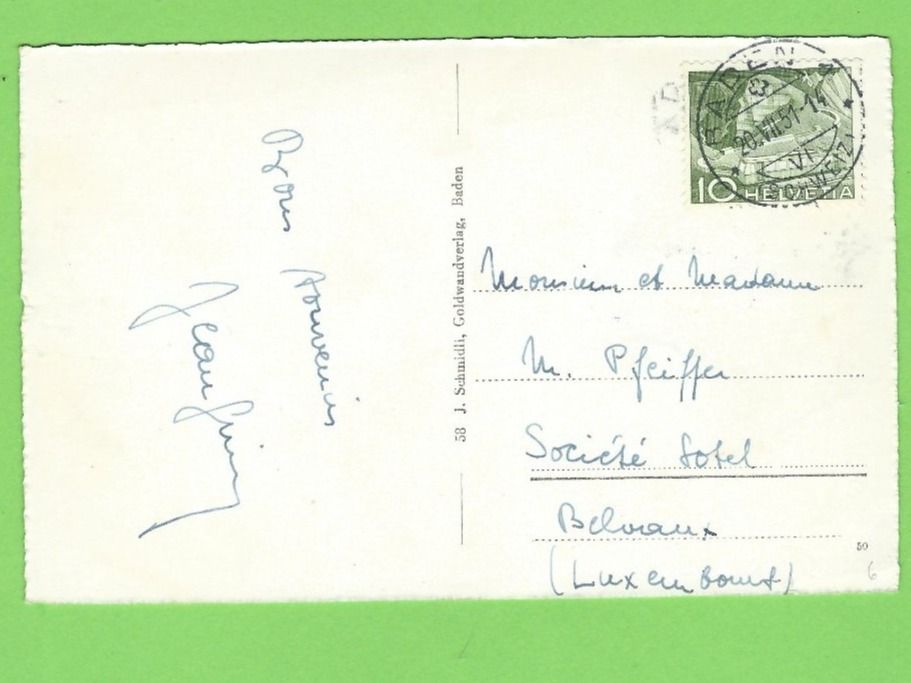 Bons souvenirs
Jean
58 J. Schmidli, Goldwandverlag, Baden
BADEN
20.VII.51-14
VI
(SCHWEIZ)
10 HELVETIA
Monsieur et Madame
M. Pfeiffer
Société Sotel
Belvaux
(Luxembourg)
50
6